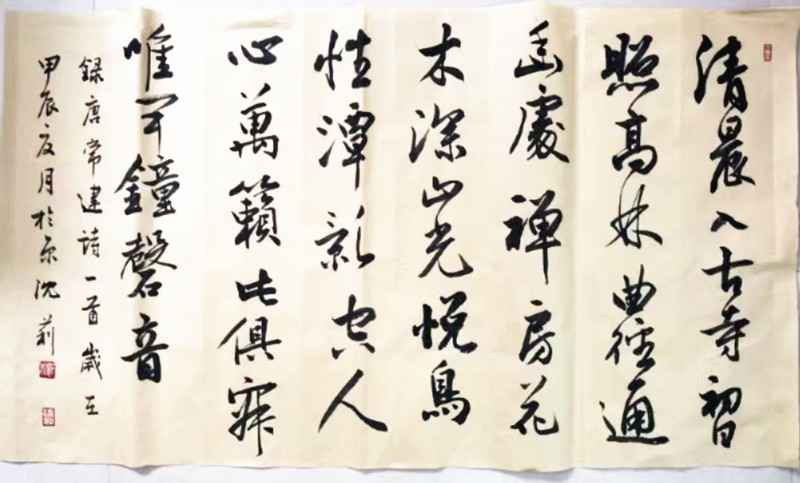 清晨入古寺初日
照高林曲徑通
幽處禅房花
木深山光悦鳥
性潭影空人
心萬籟此俱寂
唯闻鐘磬音
録唐常建詩一首歲在
甲辰夏月於京沈莉